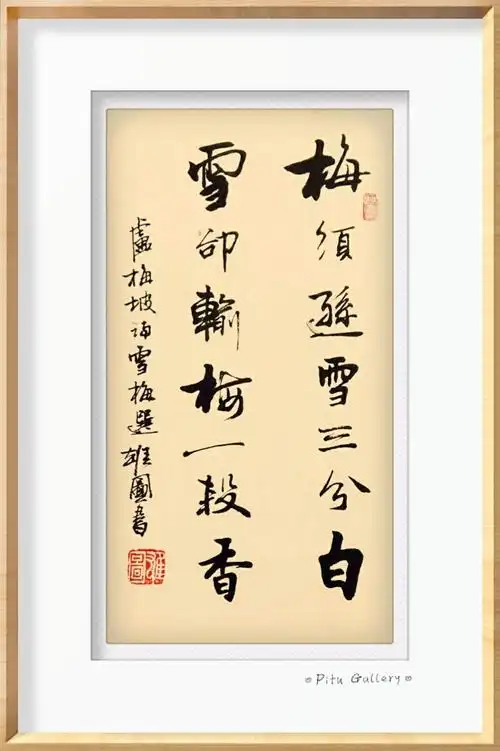 梅須遜雪三分白
雪卻輸梅一段香
盧梅坡詩雪梅選雄圖書
雄圖
Pitu Gallery